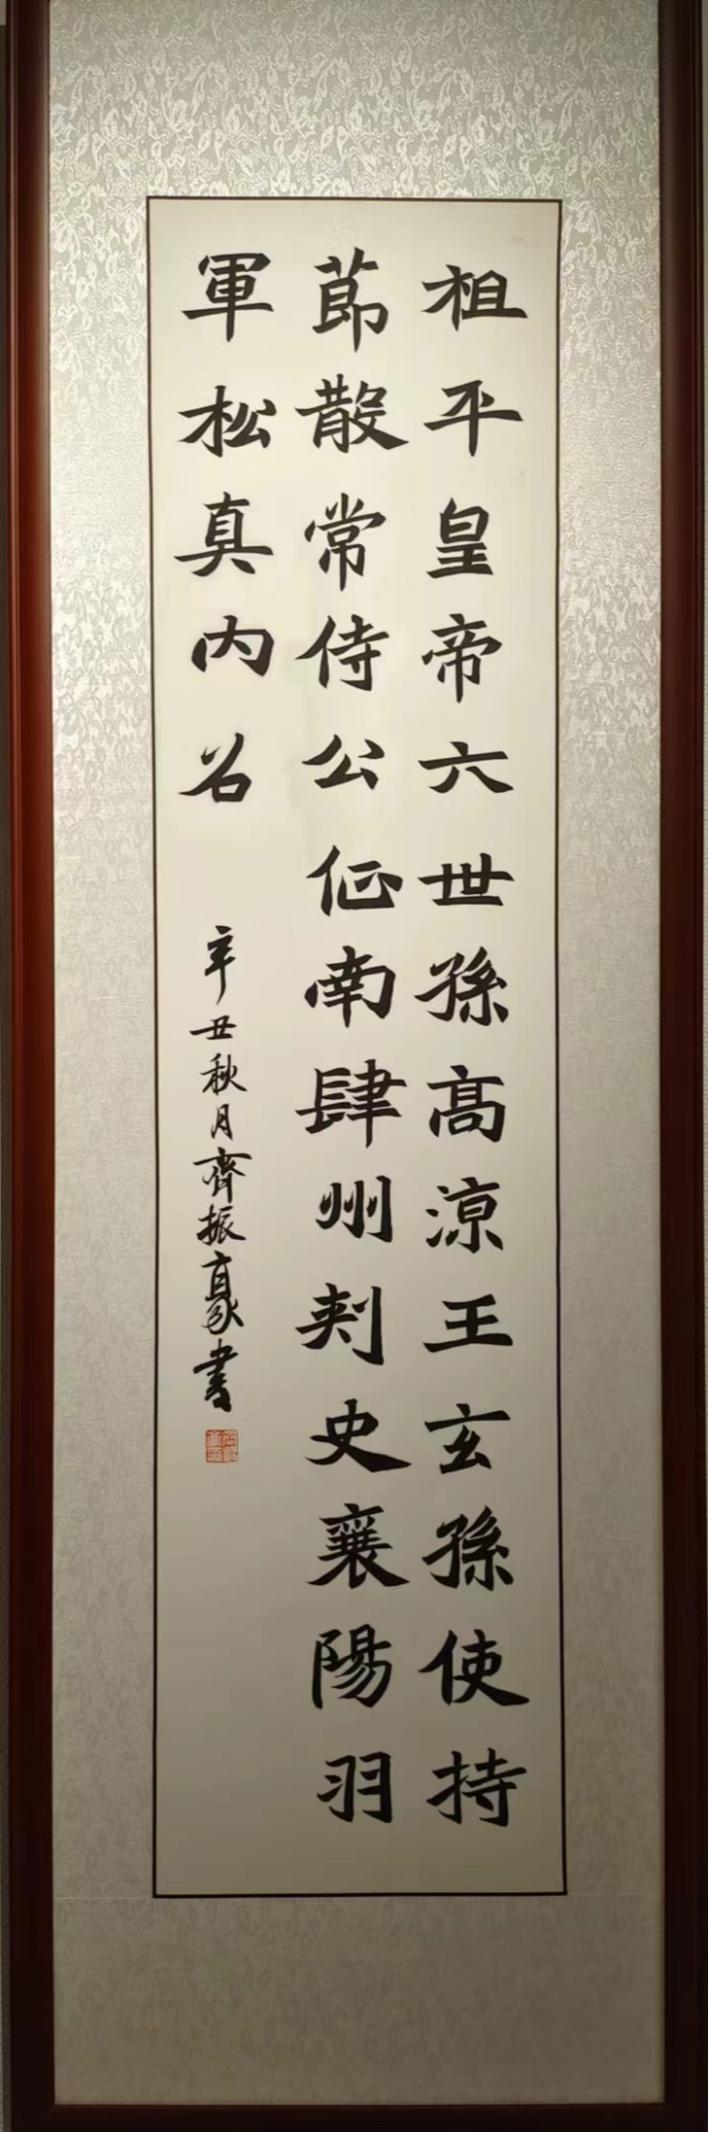 祖平皇帝六世孫高涼王玄孫使持
節散常侍公征南肆州刺史襄陽羽
軍松真内名
辛丑秋月齊振豪書